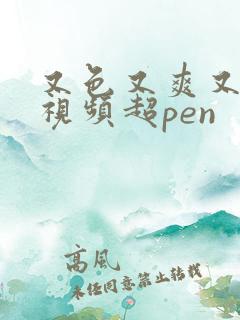 又色又爽又
視頻超pen
高風
未任同意禁止转载